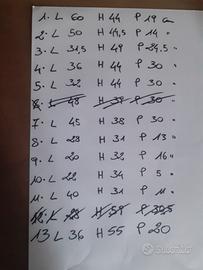 1. L 60 H 44 P 19 cm
2. L 50 H 44,5 P 14 "
3. L 31,5 H 49 P 24,5 "
4. L 36 H 44 P 30 "
5. L 32 H 44 P 30 "
6. L 48 H 39 P 30 "
7. L 45 H 38 P 30 "
8. L 28 H 31 P 13 "
9. L 20 H 32 P 16 "
10. L 22 H 34 P 5 "
11. L 40 H 31 P 11 "
12. L H 59 P 39,5
13 L 36 H 55 P 20
subito